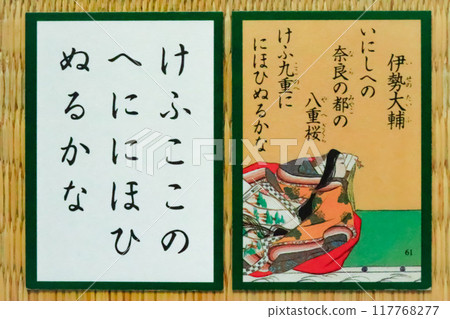 けふここの
へににほひ
ぬるかな
伊勢大輔
いにしへの
奈良の都の
八重桜
けふ九重に
にほひぬるかな
61
117768277